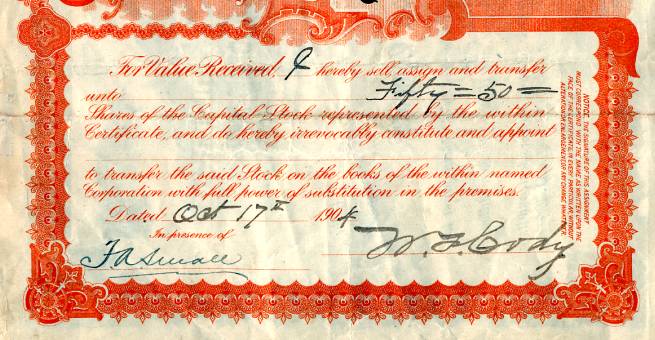 For Value Received, I hereby sell, assign and transfer
unto Fifty = 50 =
Shares of the Capital Stock represented by the within
Certificate, and do hereby irrevocably constitute and appoint
to transfer the said Stock on the books of the within named
Corporation with full power of substitution in the premises.
Dated Oct 17th 1904
In presence of
FA Small
W. F. Cody
NOTICE, THE SIGNATURE OF THIS ASSIGNMENT
MUST CORRESPOND WITH THE NAME AS WRITTEN UPON THE
FACE OF THE CERTIFICATE IN EVERY PARTICULAR WITHOUT
ALTERATION OR ENLARGEMENT OR ANY CHANGE WHATEVER.